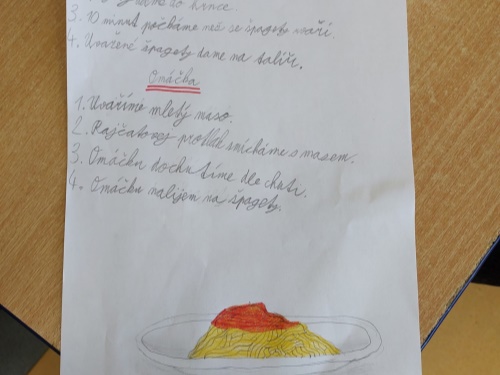 do hrnce.
3. 10 minut počkáme než se špagety uvaří.
4. Uvařené špagety dáme na talíř.
Omáčka
1. Uvaříme mletý maso.
2. Rajčatový protlak smícháme s masem.
3. Omáčku dochutíme dle chuti.
4. Omáčku nalijem na špagety.